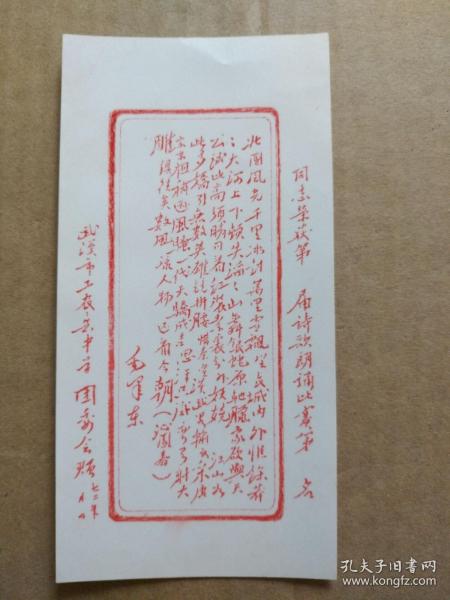 同志荣获第 届诗歌朗诵比赛第 名
北国风光千里冰封万里雪飘望长城内外惟余莽
ミ大河上下顿失滔ミ山舞银蛇原驰腊象欲与天
公试比高须晴日看红装素裹分外妖娆 江山如
此多娇引无数英雄竞折腰惜秦皇汉武略输文采唐
宗宋祖稍逊风骚一代天骄成吉思汗只识弯弓射大
雕俱往矣数风流人物还看今朝
毛泽东
武汉市工农 中学团委会赠
七二年 月 日
孔夫子旧书网
www.kongfz.com